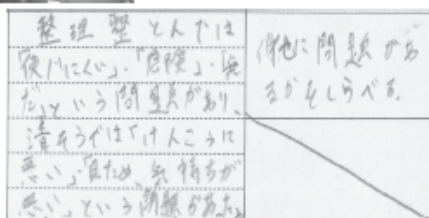 整理整とんでは
使いにくい」・「危険」・無
だ」という問題があり、
清そうではけんこうに
悪い」・「ため、気持ちが
悪い」という問題があった。
他に問題があ
るかをしらべる。